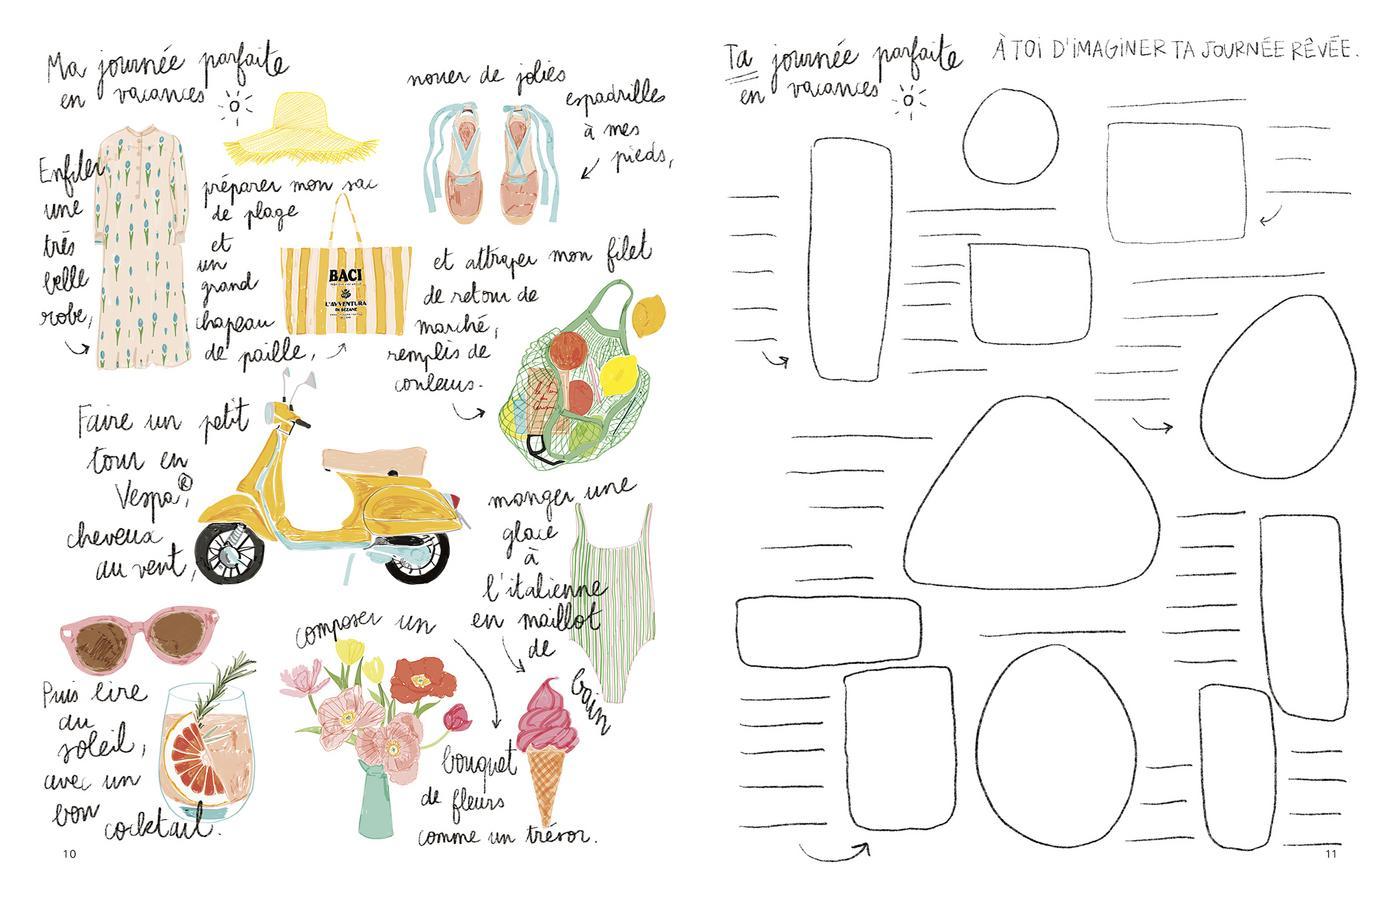 Ma journée parfaite
en vacances
Enfiler
une
très
belle
robe,
préparer mon sac
de plage
et
un
grand
chapeau
de paille,
BACI
L'AVVENTURA
DI SÉZANE
nouer de jolies
espadrilles
à mes
pieds,
et attraper mon filet
de retour de
marché,
remplis de
couleurs.
Faire un petit
tour en
Vespa®,
cheveux
au vent,
manger une
glace
à
l'italienne
en maillot
de
bain
Puis lire
au
soleil,
avec un
bon
cocktail.
composer un
bouquet
de fleurs
comme un trésor.
10
Ta journée parfaite
en vacances
À TOI D'IMAGINER TA JOURNÉE RÊVÉE.
11